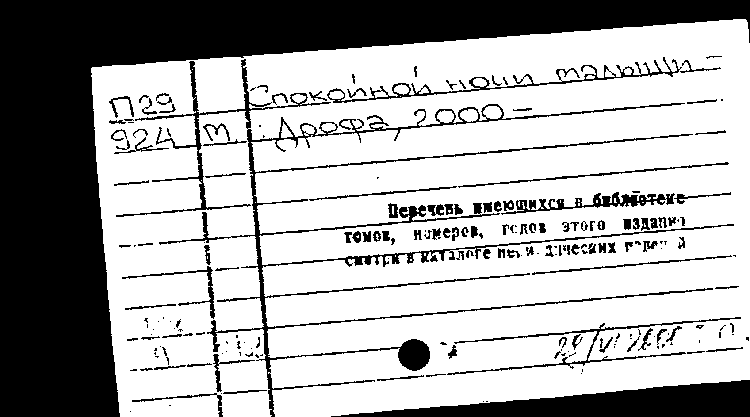 П29 Спокойной ночи малыши. -
924 м. : Дрофа, 2000 -
Перечень имеющихся в библиотеке
томов, номеров, годов этого издания
смотри в каталоге периодических изданий
9
29/VI 2000